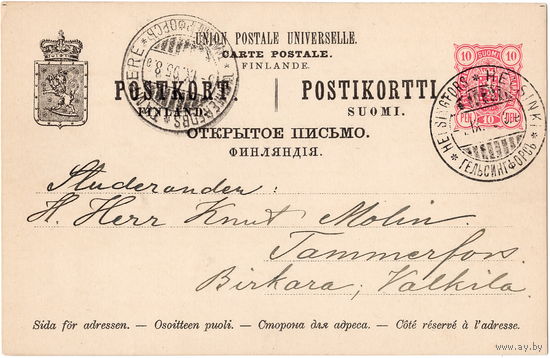 UNION POSTALE UNIVERSELLE.
CARTE POSTALE.
FINLANDE.
POSTKORT. POSTIKORTTI.
FINLAND. SUOMI.
ОТКРЫТОЕ ПИСЬМО.
ФИНЛЯНДІЯ.
10 SUOMI 10
10
HELSINGFORS * HELSINKI * ГЕЛЬСИНГФОРСЪ *
TAMMERFORS * TAMPERE * ТАММЕРФОРСЪ
Studeranden:
H. Herr Knut Molin
Tammerfors.
Birkara, Valkila.
Sida för adressen. — Osoitteen puoli. — Сторона для адреса. — Côté réservé à l'adresse.
www.ay.by